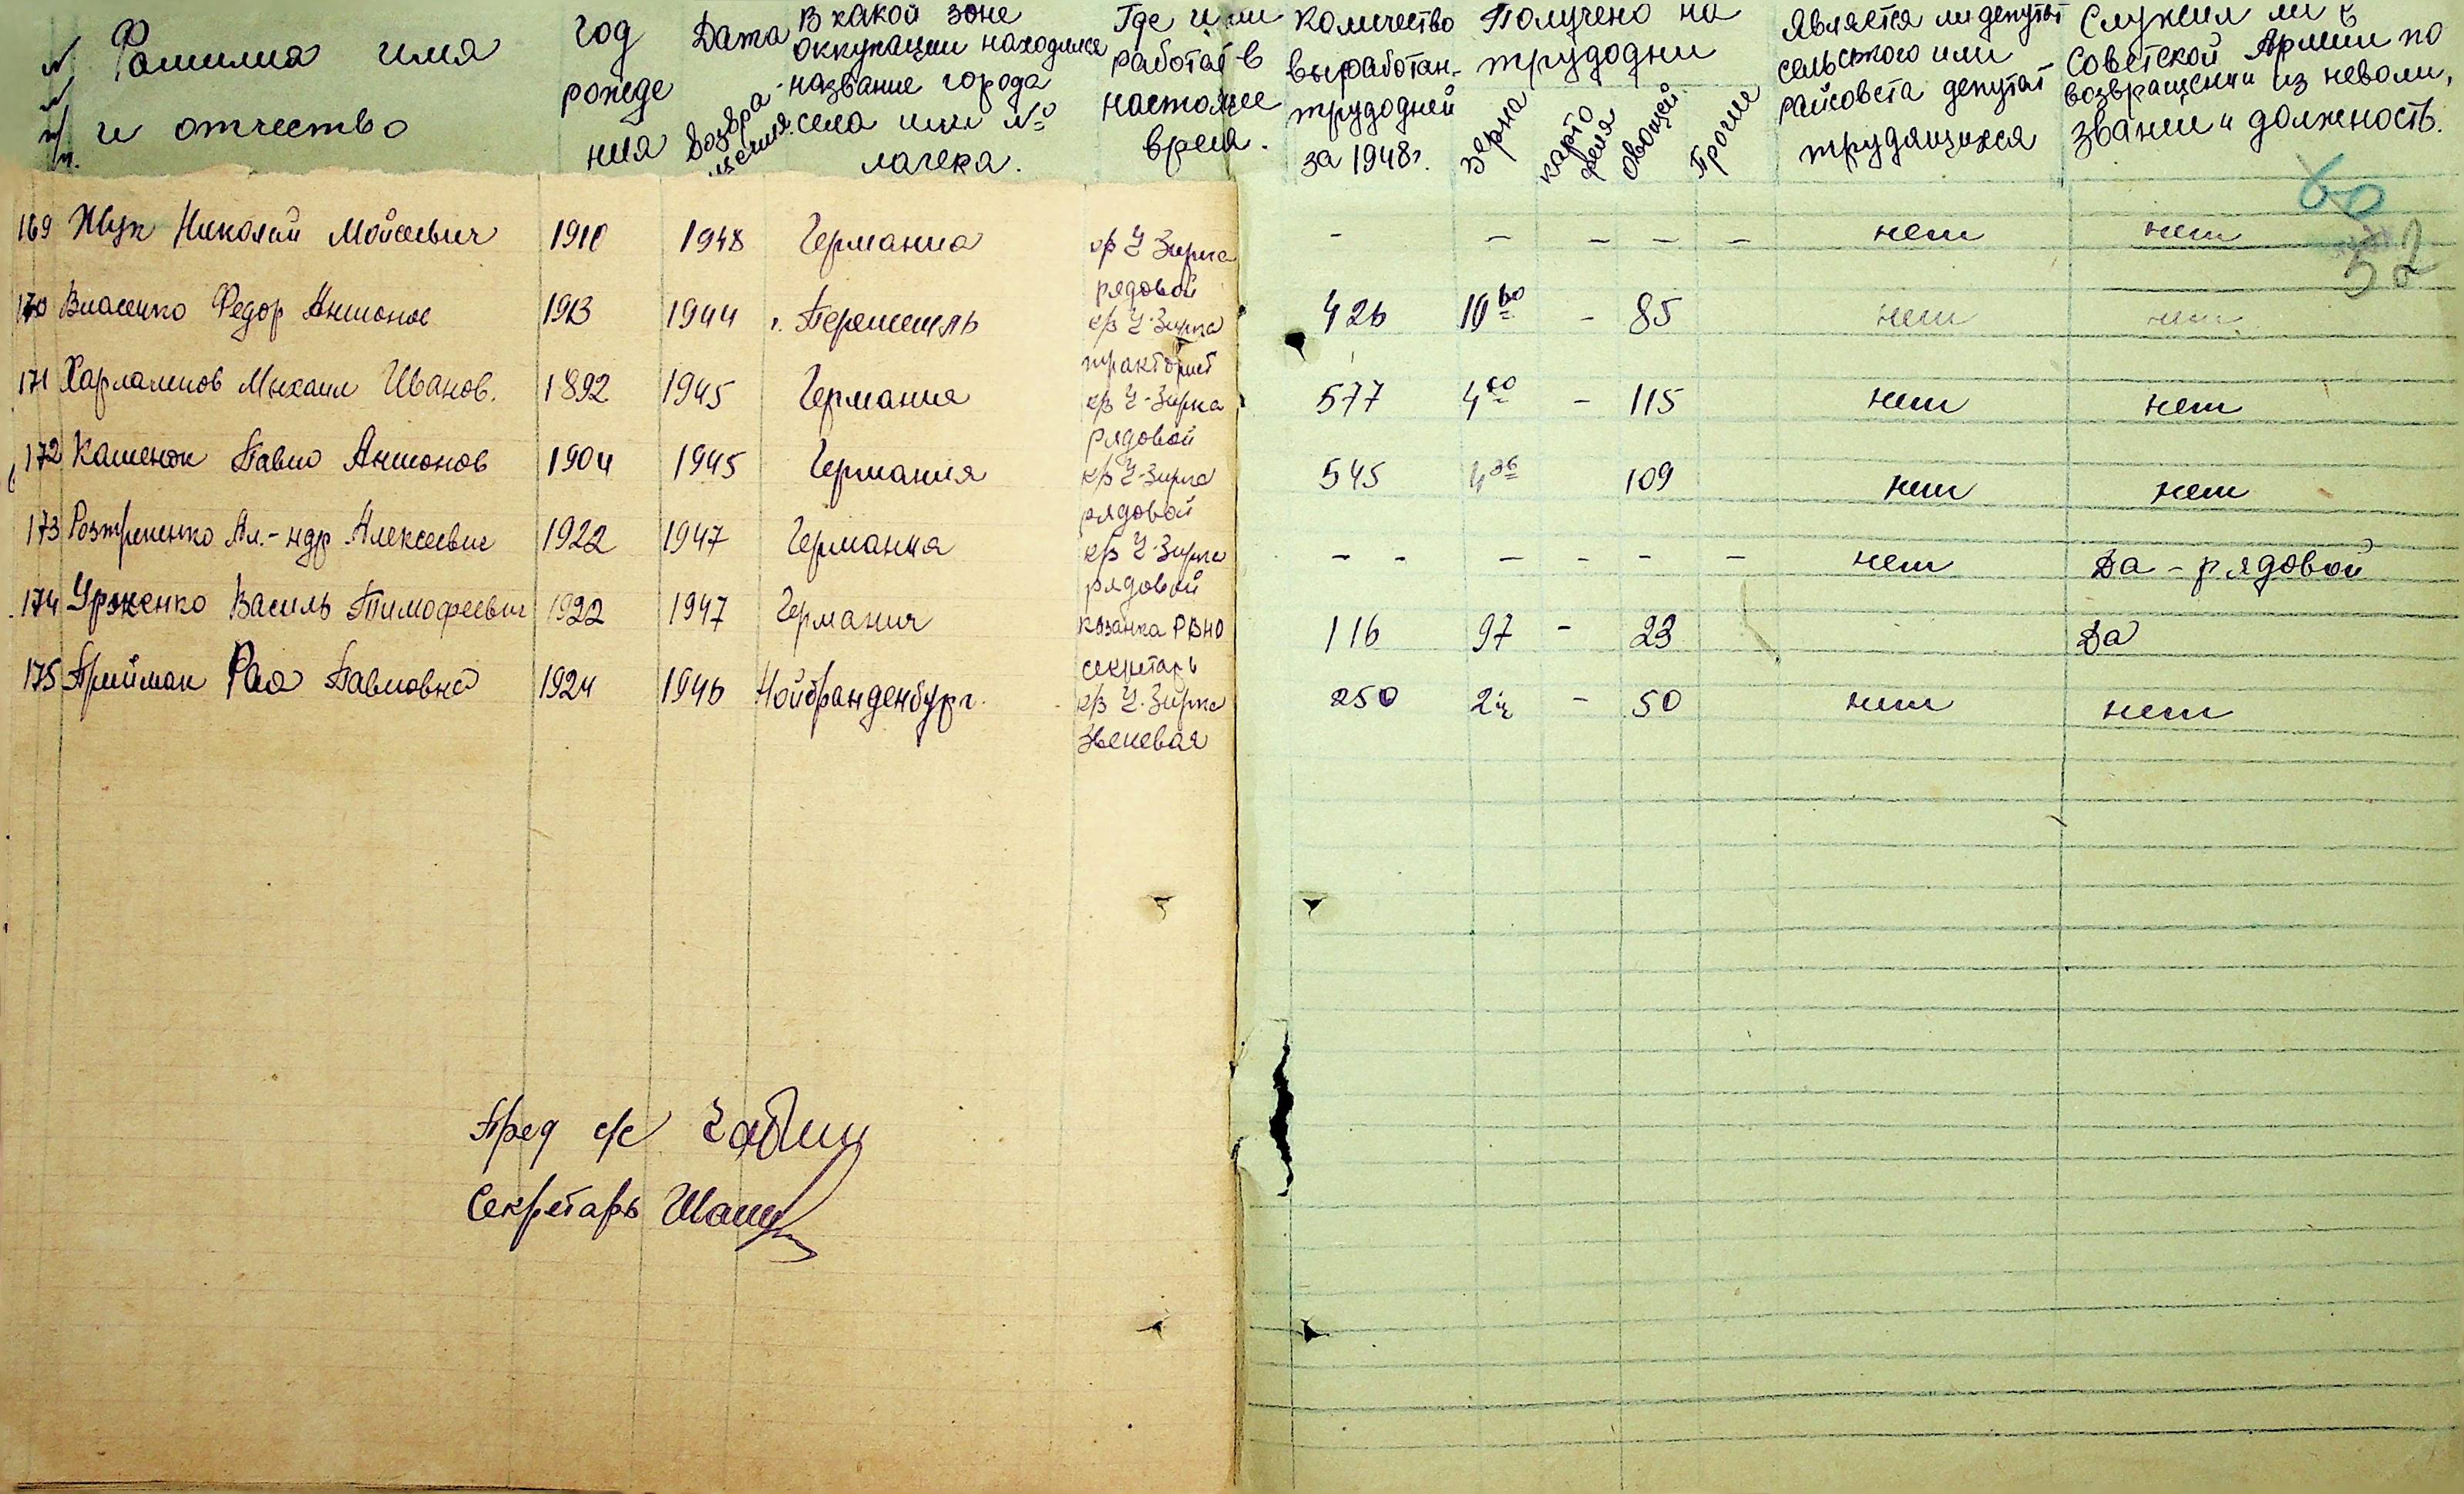 № п/п.
Фамилия имя
и отчество
Год
рожде
ния
Дата
Возвра-
щения.
В какой зоне
оккупации находился
-название города
села или №
лагеря.
Где или
работает в
настоящее
время.
Количество
выработан-
трудодней
за 1948г.
Получено на
трудодни
Зерна
карто
феля
Овощей
Прочие
Является ли депутат
сельского или
райсовета депутат
трудящихся
Служил ли в
Советской Армии по
возвращении из неволи,
звание и должность.
60
52
169 Жук Николай Мойсевич 1910 1948 Германия к/в Ч Зирка - - - - - нет нет
рядовой
170 Власенко Федор Антонов 1913 1944 г. Перемишль к/в Ч-Зирка 426 10 60 - 85 нет нет
тракторист
171 Харлампов Михаил Иванов. 1892 1945 Германия к/в Ч-Зирка 577 4 60 - 115 нет нет
рядовой
172 Каменюк Павло Антонов 1904 1945 Германия к/в Ч-Зирка 545 4 36 109 нет нет
рядовой
173 Ал.-ндр Алексеевич 1922 1947 Германия к/в Ч-Зирка - - - - - - нет Да - рядовой
рядовой
174 Василь Тимофеевич 1922 1947 Германия Козанка РВНО 116 97 - 23 Да
секретарь
175 Прийман Рая Павловна 1924 1946 Нойбранденбург. к/в Ч-Зирка 250 2ц - 50 нет нет
Звеневая
Пред с/с
Секретарь